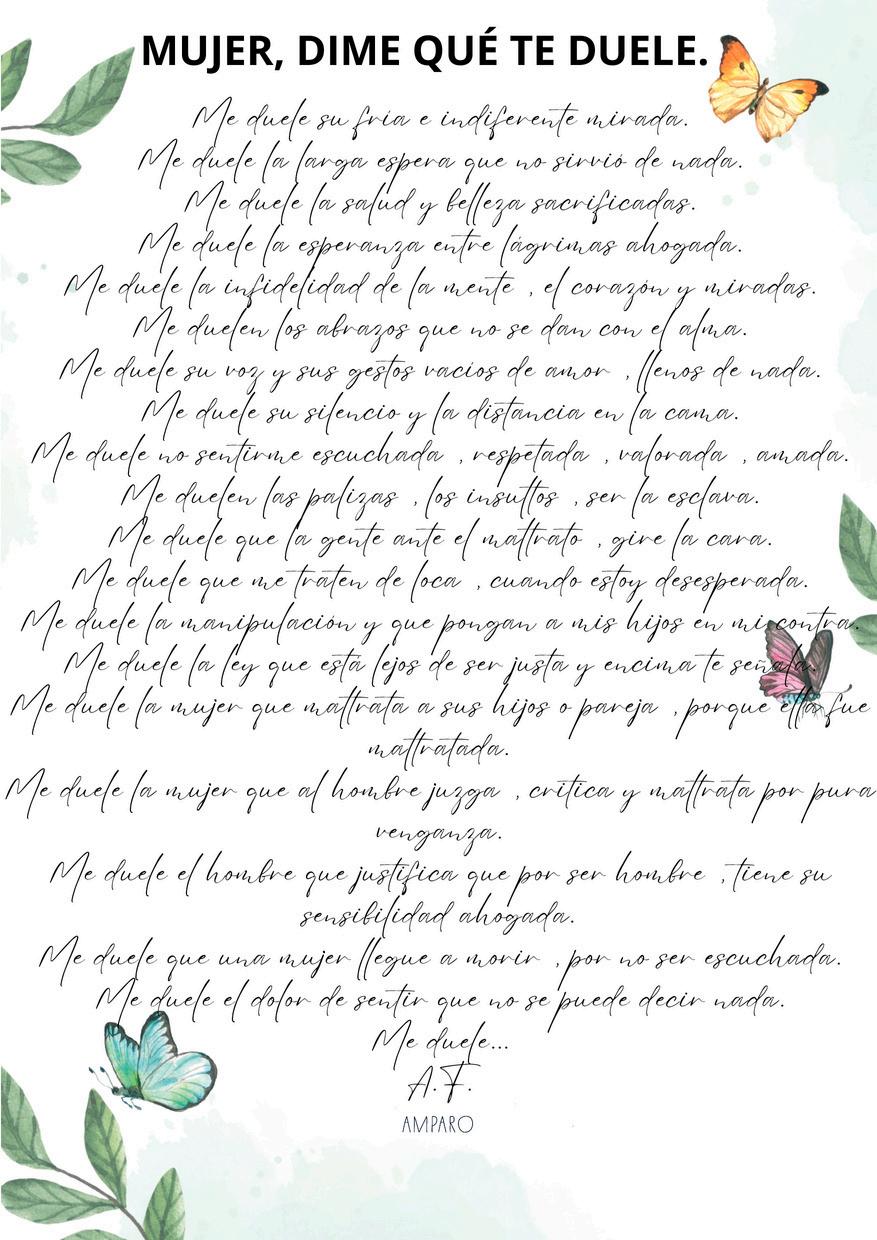 MUJER, DIME QUÉ TE DUELE.
Me duele su fría e indiferente mirada.
Me duele la larga espera que no sirvió de nada.
Me duele la salud y belleza sacrificadas.
Me duele la esperanza entre lágrimas ahogada.
Me duele la infidelidad de la mente , el corazón y miradas.
Me duelen los abrazos que no se dan con el alma.
Me duele su voz y sus gestos vacíos de amor , llenos de nada.
Me duele su silencio y la distancia en la cama.
Me duele no sentirme escuchada , respetada , valorada , amada.
Me duelen las palizas , los insultos , ser la esclava.
Me duele que la gente ante el maltrato , gire la cara.
Me duele que me traten de loca , cuando estoy desesperada.
Me duele la manipulación y que pongan a mis hijos en mi contra.
Me duele la ley que está lejos de ser justa y encima te señala.
Me duele la mujer que maltrata a sus hijos o pareja , porque ella fue
maltratada.
Me duele la mujer que al hombre juzga , critica y maltrata por pura
venganza.
Me duele el hombre que justifica que por ser hombre , tiene su
sensibilidad ahogada.
Me duele que una mujer llegue a morir , por no ser escuchada.
Me duele el dolor de sentir que no se puede decir nada.
Me duele...
A.F.
AMPARO